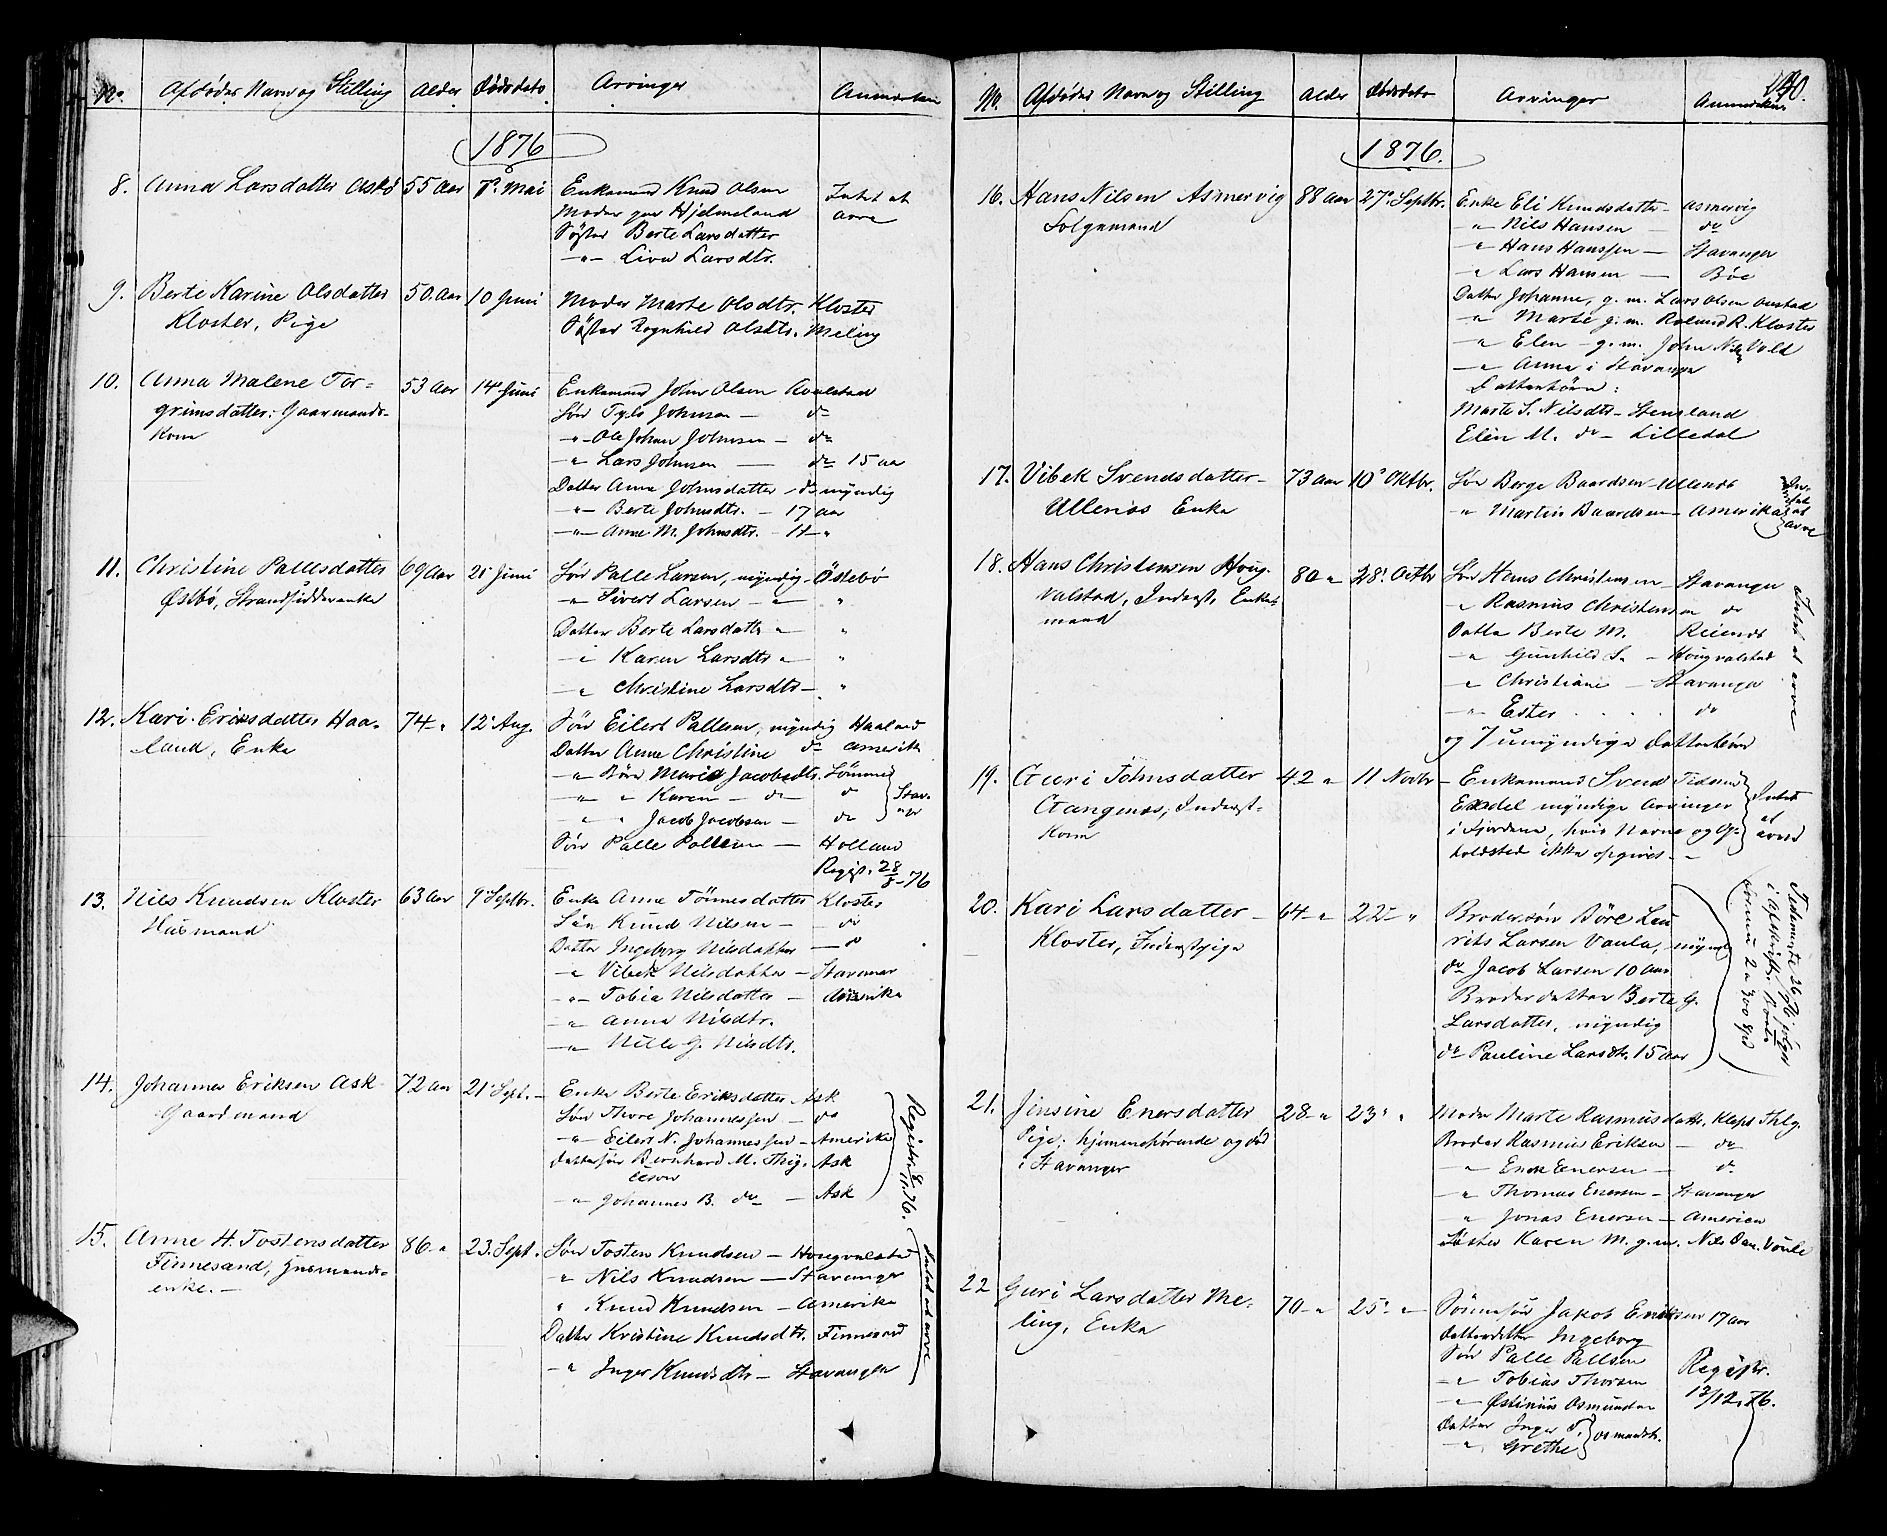 No. Afdødes Navn og Stilling Alder Dødsdato Arvinger
1876
8. Anna Larsdatter Askø 55 Aar Mai Enkemand Knud Olsen Intet at
Moder paa Hjelmeland arve
Søster Berte Larsdatter
-"- Liva Larsdtr.
9. Berte Karine Olsdatter 50 Aar 10 Juni Moder Marte Olsdtr. Kloster
Kloster, Pige Søster Ragnhild Olsdtr. Meling
10. Anna Malene Tor- 53 Aar 14 Juni Enkemand John Olsen Avalstad
grimsdatter: Gaarmands- Søn Johnsen — do
Kone -"- Ole Johan Johnsen — do
-"- Lars Johnsen — do 15 aar
Datter Anne Johnsdatter - do myndig
-"- Berte Johnsdtr. - 17 aar
-"- Anne M. Johnsdtr. - 11 "
11. Christine Pallesdatter 69 Aar 21 Juni Søn Palle Larsen, myndig Østebø
Østbø, Strandsidderenke -"- Sivert Larsen - " "
Datter Berte Larsdatter " "
-"- Karen Larsdtr " "
-"- Christine Larsdtr - "
12. Kari Eriksdatter Haa- 74 " 12 Aug. Søn Eilert Pallesen, myndig Haaland
land, Enke Datter Anne Christine do Amerika
-"- Børn Marie Jacobsdtr.
-"- " Karen - do do Stav-
-"- " Jacob Jacobsen — do anger
Søn Palle Pallesen — Holland
Regist. 28/8-76
13. Nils Knudsen Kloster 63 Aar 9 Septbr. Enke Anne Tønnesdatter Kloster
Husmand Søn Knud Nilsen — do
Datter Ingeborg Nilsdatter — do
-"- Vibek Nilsdatter — Stavanger
-"- Tobia Nilsdatter — Amerika
-"- Anna Nilsdtr.
-"- Nille G. Nilsdtr.
14. Johannes Eriksen Ask 72 Aar 21 Sept. - Enke Berte Eriksdatter Ask
Gaardmand Søn Thore Johannessen — do
-"- Eilert N. Johannessen — Amerika
Dattersøn Bernhard M. Ask
-"- Johannes B. do — Ask
Registr.
15. Anne H. Tostensdatter 86 " 23 Sept. Søn Tosten Knudsen — Hougvalstad
Finnesand, Husmands- " Nils Knudsen — Stavanger
enke. — " Knud Knudsen — Amerika
Datter Kristine Knudsdtr. Finnesand
-"- Inger Knudsdtr — Stavanger
Intet at arve
No. Afdødes Navn og Stilling Alder Dødsdato Arvinger
1876.
16. Hans Nilsen Asmervig 88 Aar 27 Septbr. Enke Eli Knudsdatter - Asmervig
Folgemand -"- Nils Hansen — do
-"- Hans Hanssen — Stavanger
-"- Lars Hansen — Bøe
Datter Johanne, g. m. Lars Olsen
-"- Marte g. m. R. Kloster
-"- Elen - g. m. John Nils. Vold
-"- Anna i Stavanger
Datterbørn:
Marte S. Nilsdtr - Stensland
Elen M. do - Lilledal
17. Vibek Svendsdatter - 73 Aar 10 Oktbr. Søn Børge Baardsen -
Enke " Martin Baardsen - Amerika
Intet at arve
18. Hans Christensen Houg- 80 " 28 Octbr Søn Hans Christensen - Stavanger
valstad, Inderst, Enke- -"- Rasmus Christensen do
mand Datter Berte M.
-"- Gunhild S. - Hougvalstad
-"- Christiane — Stavanger
-"- Ester . . . . do
og 7 umyndige Datterbørn
Intet at arve
19. Guri Johnsdatter 42 " 11 Novbr — Enkemand Svend
Inderst- Endel myndige Arvinger Intet
Kone i Fjordene, hvis Navne og Op- at
holdsted ikke opgives - " arve
20. Kari Larsdatter — 64 " 22 " Brodersøn Børe Lau
Kloster, Inderstpige rits Larsen Vaula, - mynd
do Jacob Larsen 10 Aar
Broderdatter Berte G.
Larsdatter, myndig
do Pauline Larsdtr. 15 Aar
21. Jinsine Enersdatter 28 " 23 " Moder Marte Rasmusdattr. Klepp
Pige; hjemmehørende og død Broder Rasmus Eriksen — do
i Stavanger -"- Enersen — do
-"- Thomas Enersen — Stavanger
-"- Jonas Enersen — America
Søster Karen M. g. m. Nils
22 Guri Larsdatter Me- 70 " 25 " Sønnesøn Jakob Eriksen 17 aar
ling, Enke Datterdatter Ingeborg
Søn Palle Pallsen
-"- Tobias Thorsen
-"- Østinius Osmundsen
Datter Inger T. Osmundsdtr.
-"- Grethe
Registr.
13/12.76.